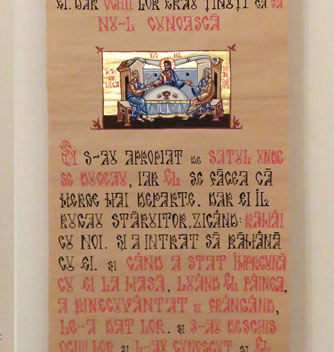 EI. DAR OCHII LOR ERAU ȚINUȚI CA SĂ
NU-L CUNOASCĂ
ȘI S-AU APROPIAT DE SATUL UNDE
SE DUCEAU, IAR EL SE FĂCEA CĂ
MERGE MAI DEPARTE. DAR EI ÎL
RUGAU STĂRUITOR, ZICÂND: RĂMÂI
CU NOI. ȘI A INTRAT SĂ RĂMÂNĂ
CU EI. ȘI CÂND A STAT ÎMPREUNĂ
CU EI LA MASĂ, LUÂND EL PÂINEA,
A BINECUVÂNTAT ȘI FRÂNGÂND,
LE-A DAT LOR. ȘI S-AU DESCHIS
OCHII LOR ȘI L-AU CUNOSCUT ȘI EL